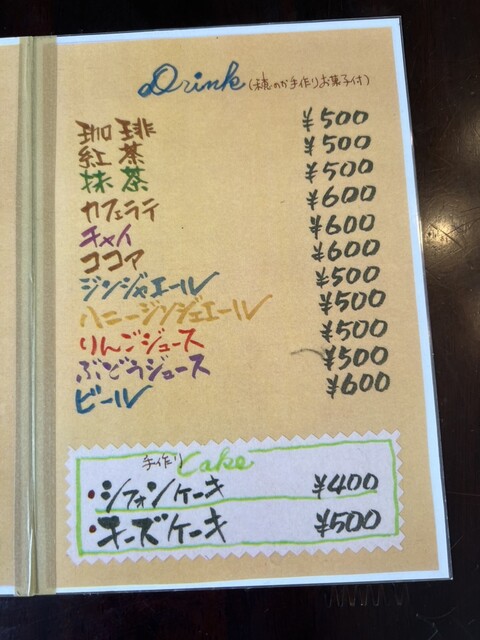 Drink (穂のか手作りお菓子付)
珈琲 ¥500
紅茶 ¥500
抹茶 ¥500
カフェラテ ¥600
チャイ ¥600
ココア ¥600
ジンジャエール ¥500
ハニージンジェエール ¥500
りんごジュース ¥500
ぶどうジュース ¥500
ビール ¥600
手作り Cake
・シフォンケーキ ¥400
・チーズケーキ ¥500